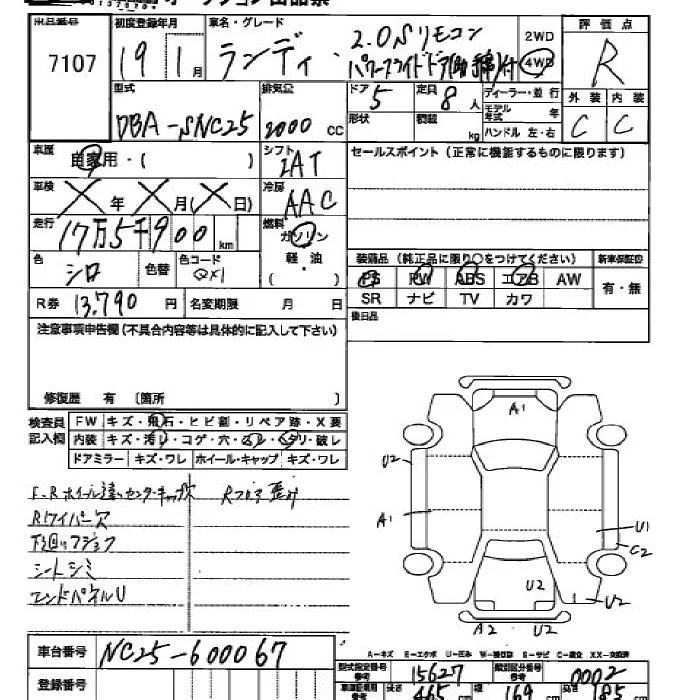 オークション出品票
出品番号
7107
初度登録年月
19 1月
車名・グレード
ランディ 2.0Sリモコン
パワースライドドア(助手席)付
2WD
4WD
評価点
R
外装 内装
C C
型式
DBA-SNC25
排気量
2000 cc
ドア
5
定員
8人
形状
積載
kg
ディーラー・並行
モデル年式 年
ハンドル 左・右
車歴
自家用・(
シフト
IAT
セールスポイント(正常に機能するものに限ります)
車検
X年 X月(X日)
冷房
AAC
走行
17万5千900 km
燃料
ガソリン
軽・油
( )
色
シロ
色替
色コード
QX1
装備品(純正品に限り○をつけてください)
新車保証書
PS PW ABS エアB AW
SR ナビ TV カワ
有・無
R券 13,790 円
名変期限 月 日
後日品
注意事項申告欄(不具合内容等は具体的に記入して下さい)
修復歴 有 〔箇所 〕
検査員
記入欄
FW キズ・飛石・ヒビ割・リペア跡・X要
内装 キズ・汚レ・コゲ・穴・スレ・ヘタリ・破レ
ドアミラー キズ・ワレ ホイール・キャップ キズ・ワレ
F、Rホイール違い センターキャップ欠
Rフロア歪み
Rワイパー欠
下廻りフショク
シートシミ
エンドパネルU
A1
U2
A1
U1
C2
U2
U2
A2 U2
A-キズ E-エクボ U-凹み W-補修跡 S-サビ C-腐食 XX-交換済
車台番号
NC25-600067
登録番号
型式指定番号
参考
15627
類別区分番号
参考
0002
長さ
465 cm
幅
169 cm
高さ
185 cm